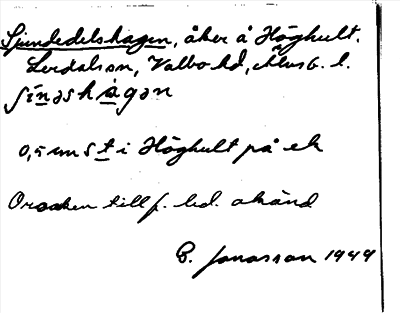 Sjundedelshagen, åker å Höghult.
Lerdalssn, Valbo hd, Älvsb. l.
ʃínəshàgən
0,5 mm S t i Höghult på ek
Orsaken till f. led. okänd
E. Jonasson 1949